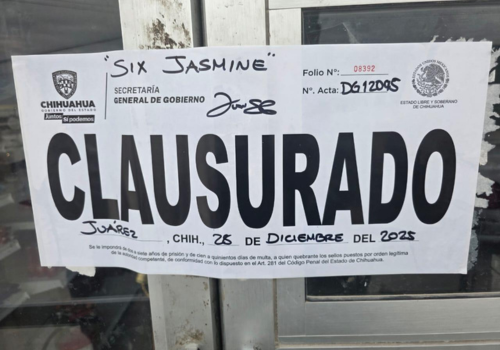 "SIX JASMINE"
CHIHUAHUA
GOBIERNO DEL ESTADO
Juntos Sí podemos
SECRETARÍA
GENERAL DE GOBIERNO
Folio Nº: 08392
N. Acta: DG12D95
ESTADO LIBRE Y SOBERANO
DE CHIHUAHUA
CLAUSURADO
JUÁREZ, CHIH., 28 DE DICIEMBRE DEL 2025
Se le impondrá de dos a siete años de prisión y de cien a quinientos días de multa, a quien quebrante los sellos puestos por orden legítima
de la autoridad competente, de conformidad con lo dispuesto en el Art. 281 del Código Penal del Estado de Chihuahua.